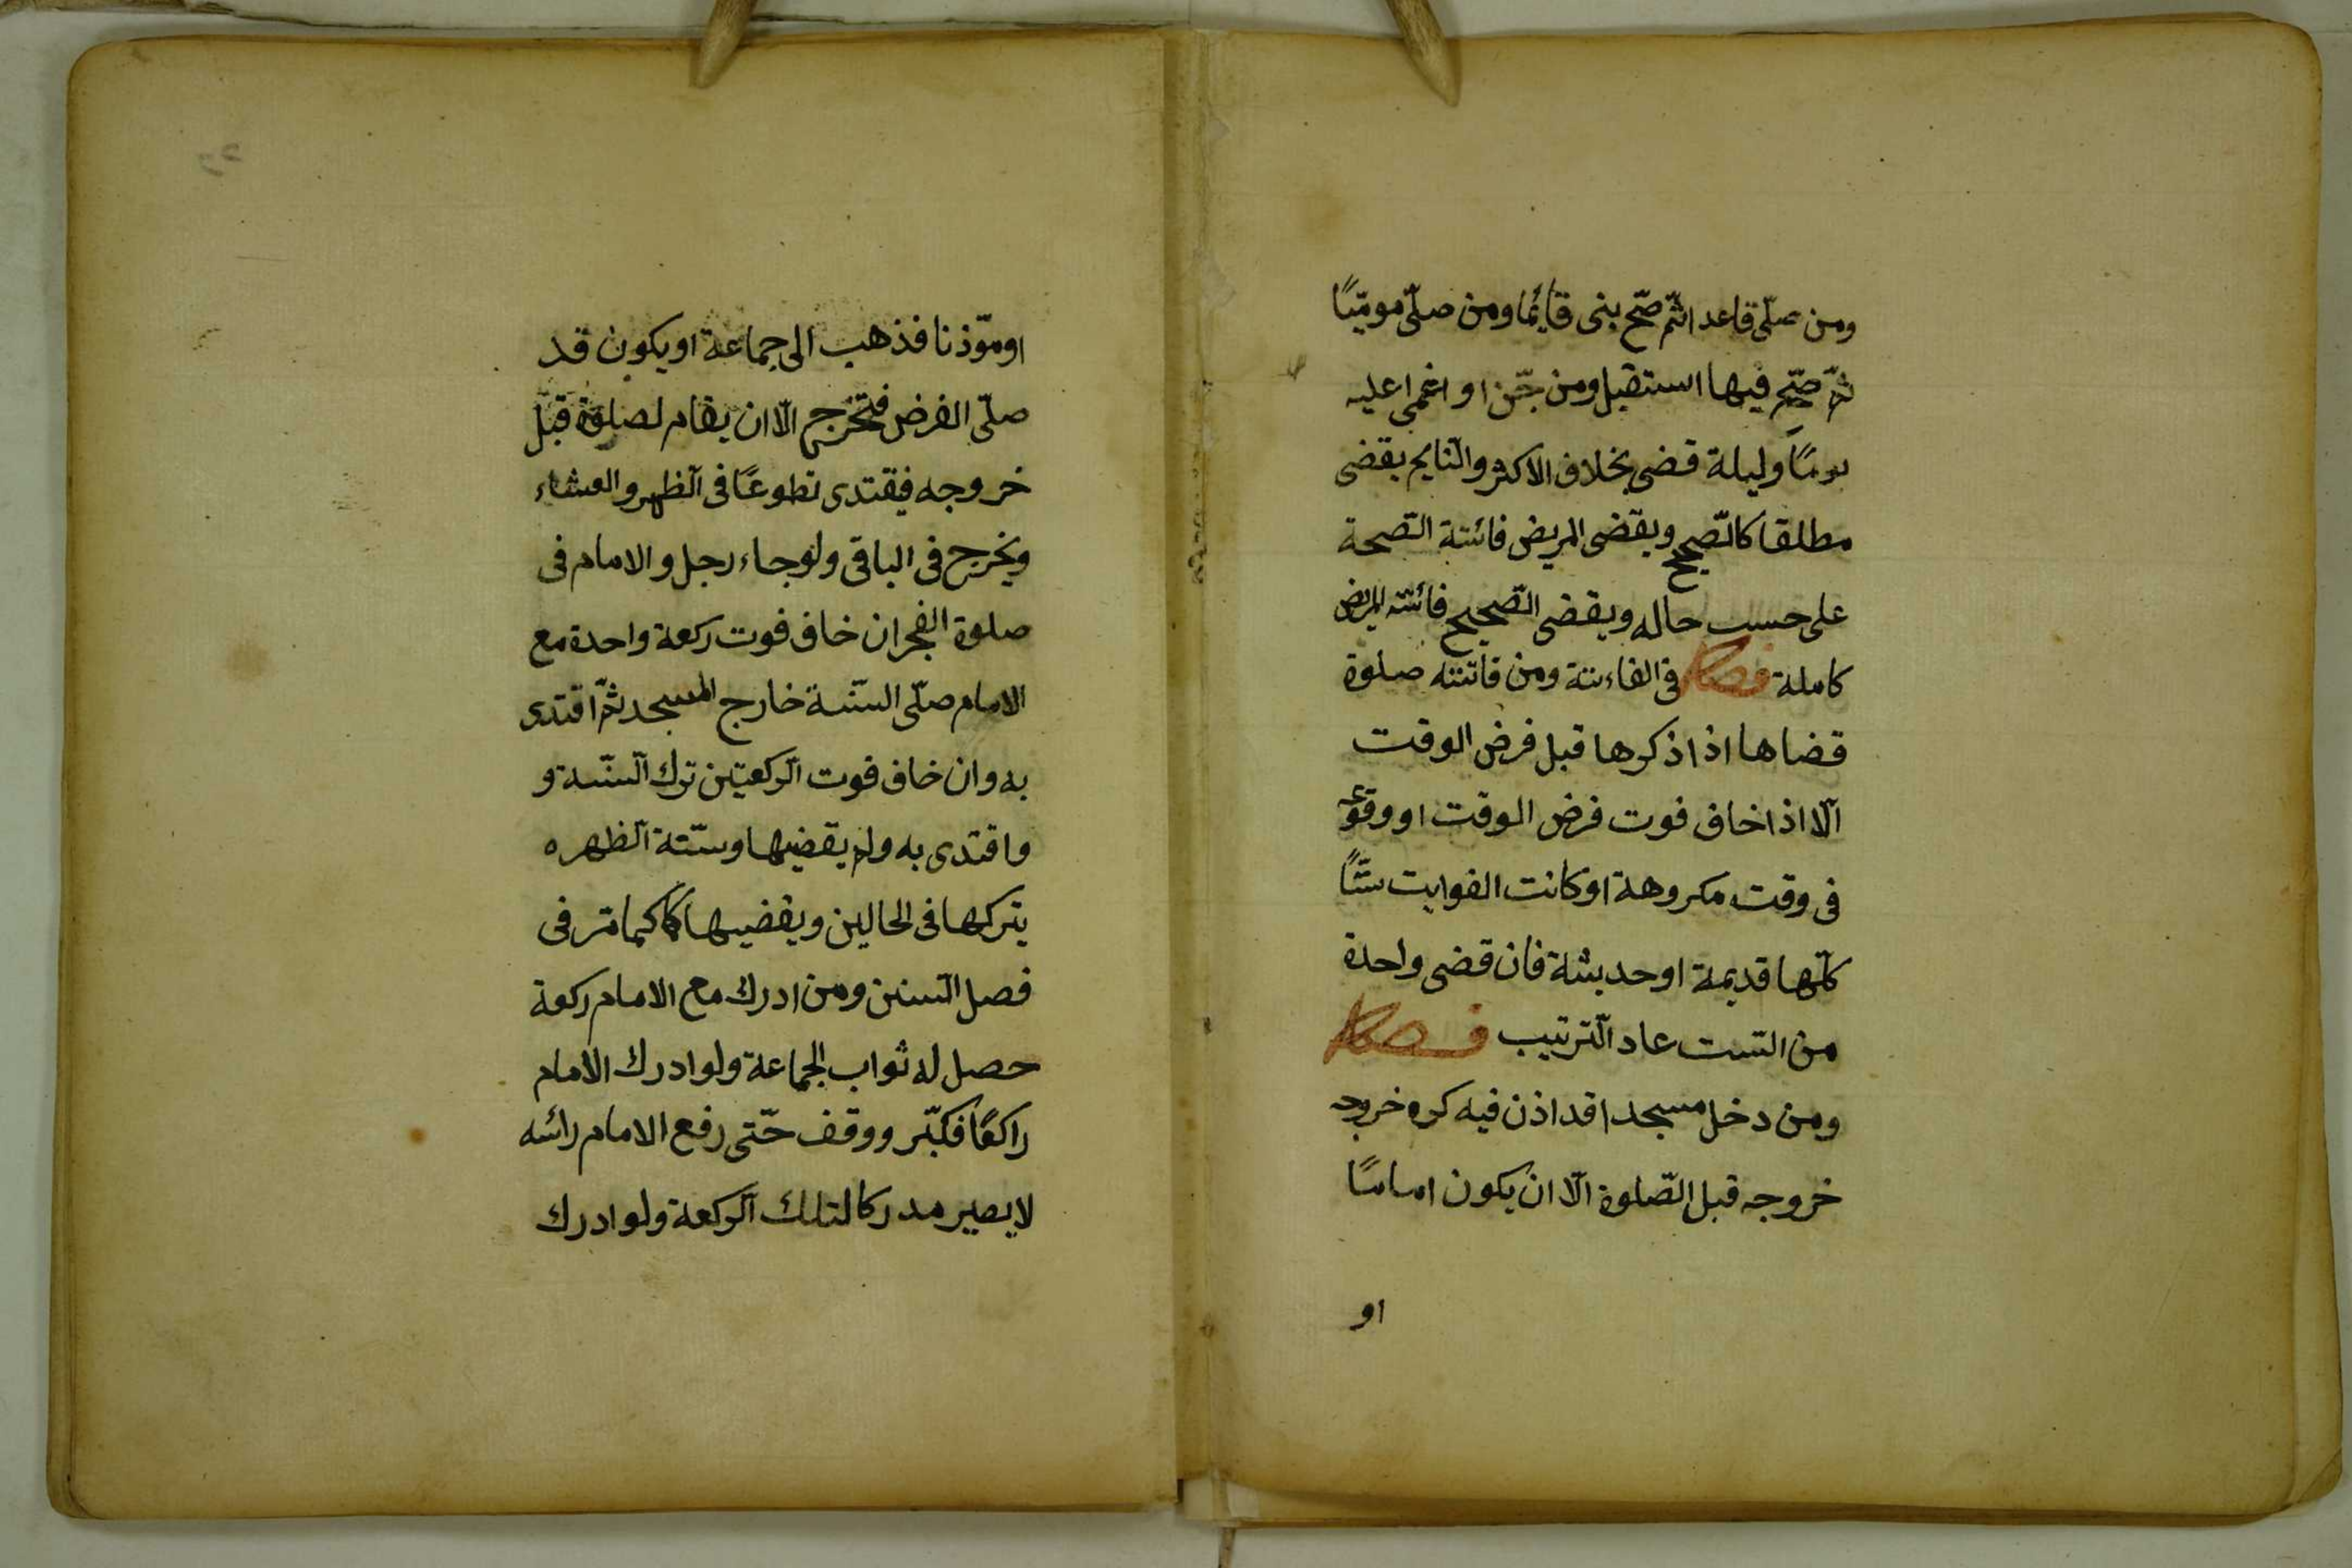 ومن صلّى قاعدا ثمّ صحّ بنى قائما ومن صلّى موميًا
ثمّ صحّ فيها استقبل ومن جنّ او اغمى عليه
يومًا وليلة قضى بخلاف الاكثر والنايم يقضى
مطلقا كالصّحيح ويقضى المريض فائتة الصّحة
على حسب حاله ويقضى الصّحيح فائتة المريض
كاملة فصل فى الفاءتة ومن فاتته صلوة
قضاها اذا ذكرها قبل فرض الوقت
الّا اذا خاف فوت فرض الوقت او وقوعه
فى وقت مكروهة او كانت الفوايت ستًّا
كلّها قديمة او حديثة فان قضى واحدة
من السّت عاد الترتيب فصل
ومن دخل مسجدا قد اذن فيه كره خروجه
خروجه قبل الصّلوة الّا ان يكون اماما
او
او مؤذنا فذهب الى جماعة او يكون قد
صلّى الفرض فيخرج الّا ان يقام لصلوة قبل
خروجه فيقتدى تطوعًا فى الظهر والعشاء
ويخرج فى الباقى ولو جاء رجل والامام فى
صلوة الفجر ان خاف فوت ركعة واحدة مع
الامام صلّى السّنة خارج المسجد ثمّ اقتدى
به وان خاف فوت الركعتين ترك السّنة و
واقتدى به ولم يقضيها وسنّة الظهره
يتركها فى الحالين ويقضيها كما كما مّر فى
فصل السنن ومن ادرك مع الامام ركعة
حصل له ثواب الجماعة ولو ادرك الامام
راكعًا فكبّر ووقف حتّى رفع الامام رائسه
لا يصير مدركا لتلك الركعة ولو ادرك